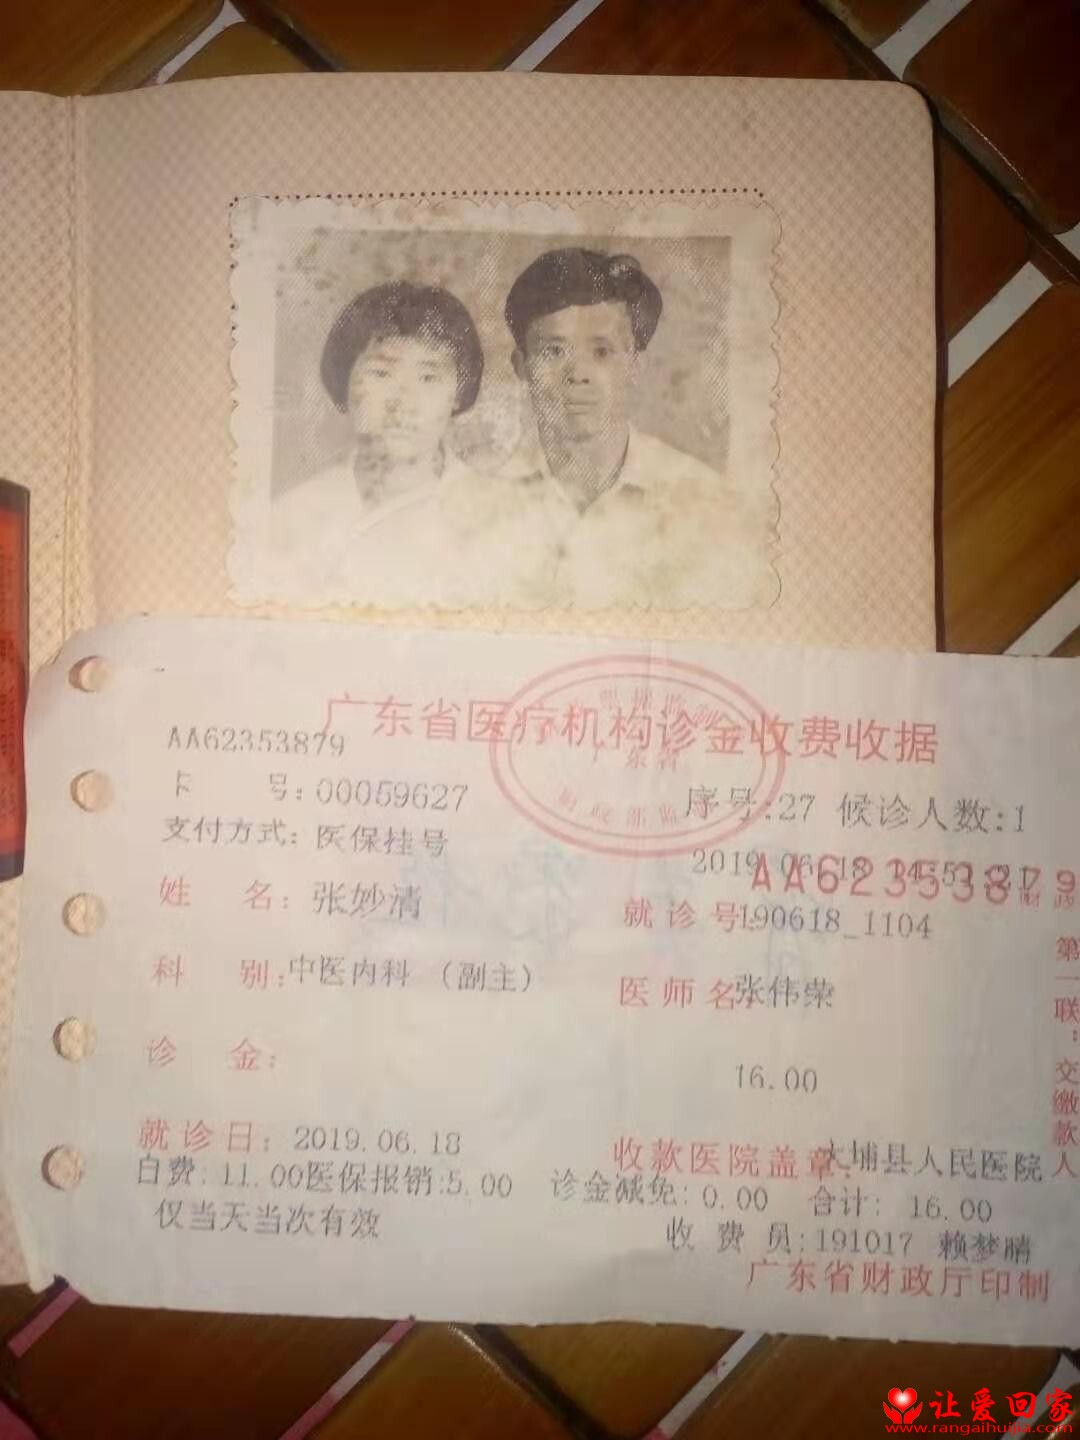 广东省医疗机构诊金收费收据
AA62353879
卡 号:00059627
序号:27 候诊人数:1
支付方式: 医保挂号
2019.06.18
AA62353879
姓 名: 张妙清
就诊号 190618_1104
科 别: 中医内科 (副主)
医师名 张伟荣
诊 金:
16.00
就诊日: 2019.06.18
收款医院盖章: 大埔县人民医院
自费: 11.00医保报销:5.00 诊金减免: 0.00 合计: 16.00
仅当天当次有效
收 费 员:191017 赖梦晴
广东省财政厅印制
第一联:交缴款人
让爱回家
www.rangaihuijia.com